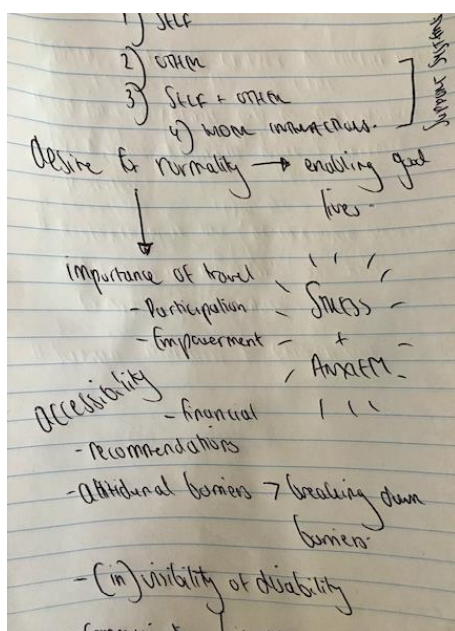 1) SELF
2) OTHER
3) SELF + OTHER
4) WORK INTERACTIONS.
Support Systems
desire for normality → enabling good
lives.
importance of travel
- Participation
- Empowerment
STRESS
+
ANXIETY
accessibility
- financial
- recommendations
- attitudinal barriers > breaking down
barriers.
- (in)visibility of disability